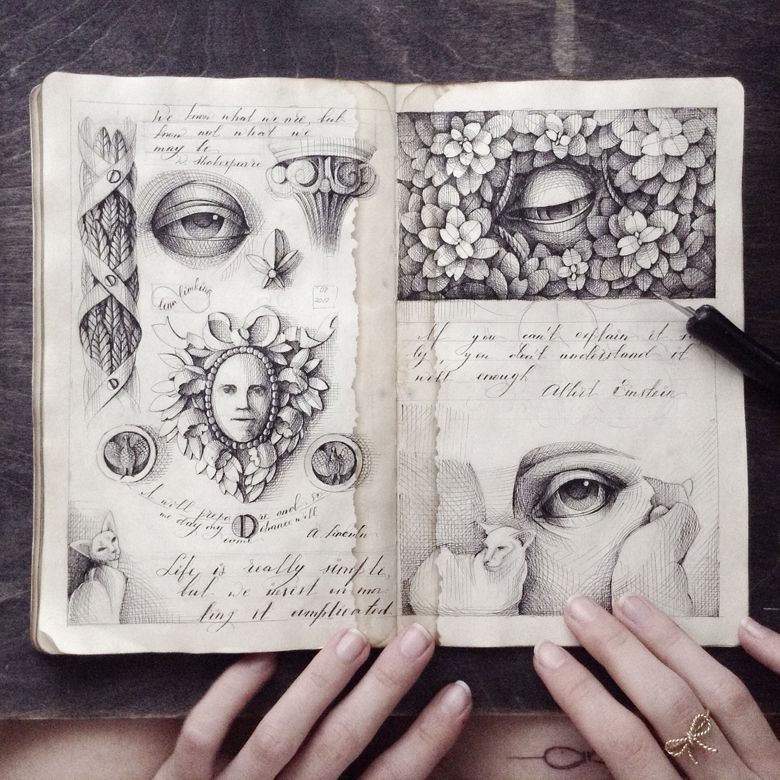 We know what we are, but
know not what we
may be
Shakespeare
Lena Limkina
08
2017
I will prepare and so
me day my chance will
come A. Lincoln
D
Life is really simple,
but we insist on ma
king it complicated
If you can't explain it
ly, you don't understand it
well enough
Albert Einstein